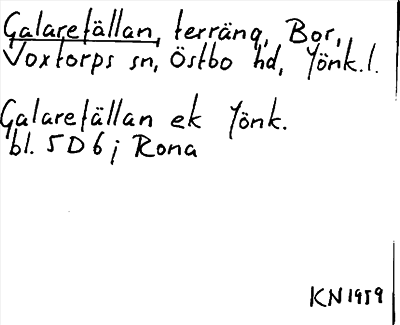 Galarefällan, terräng, Bor,
Voxtorps sn, Östbo hd, Jönk.l.
Galarefällan ek Jönk.
bl. 5D6j Rona
KN1959